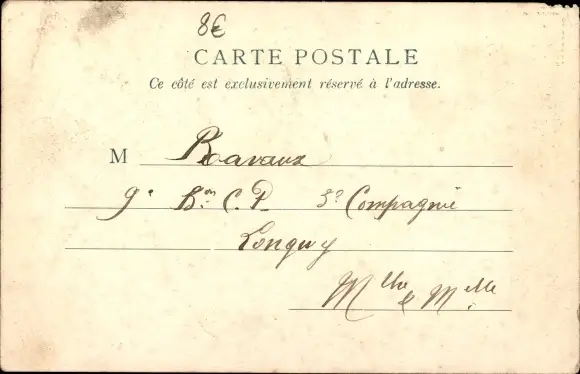 8€
CARTE POSTALE
Ce côté est exclusivement réservé à l'adresse.
M Ravaux
9e Bon C. P. 5e Compagnie
Longwy
Mthe & Mlle